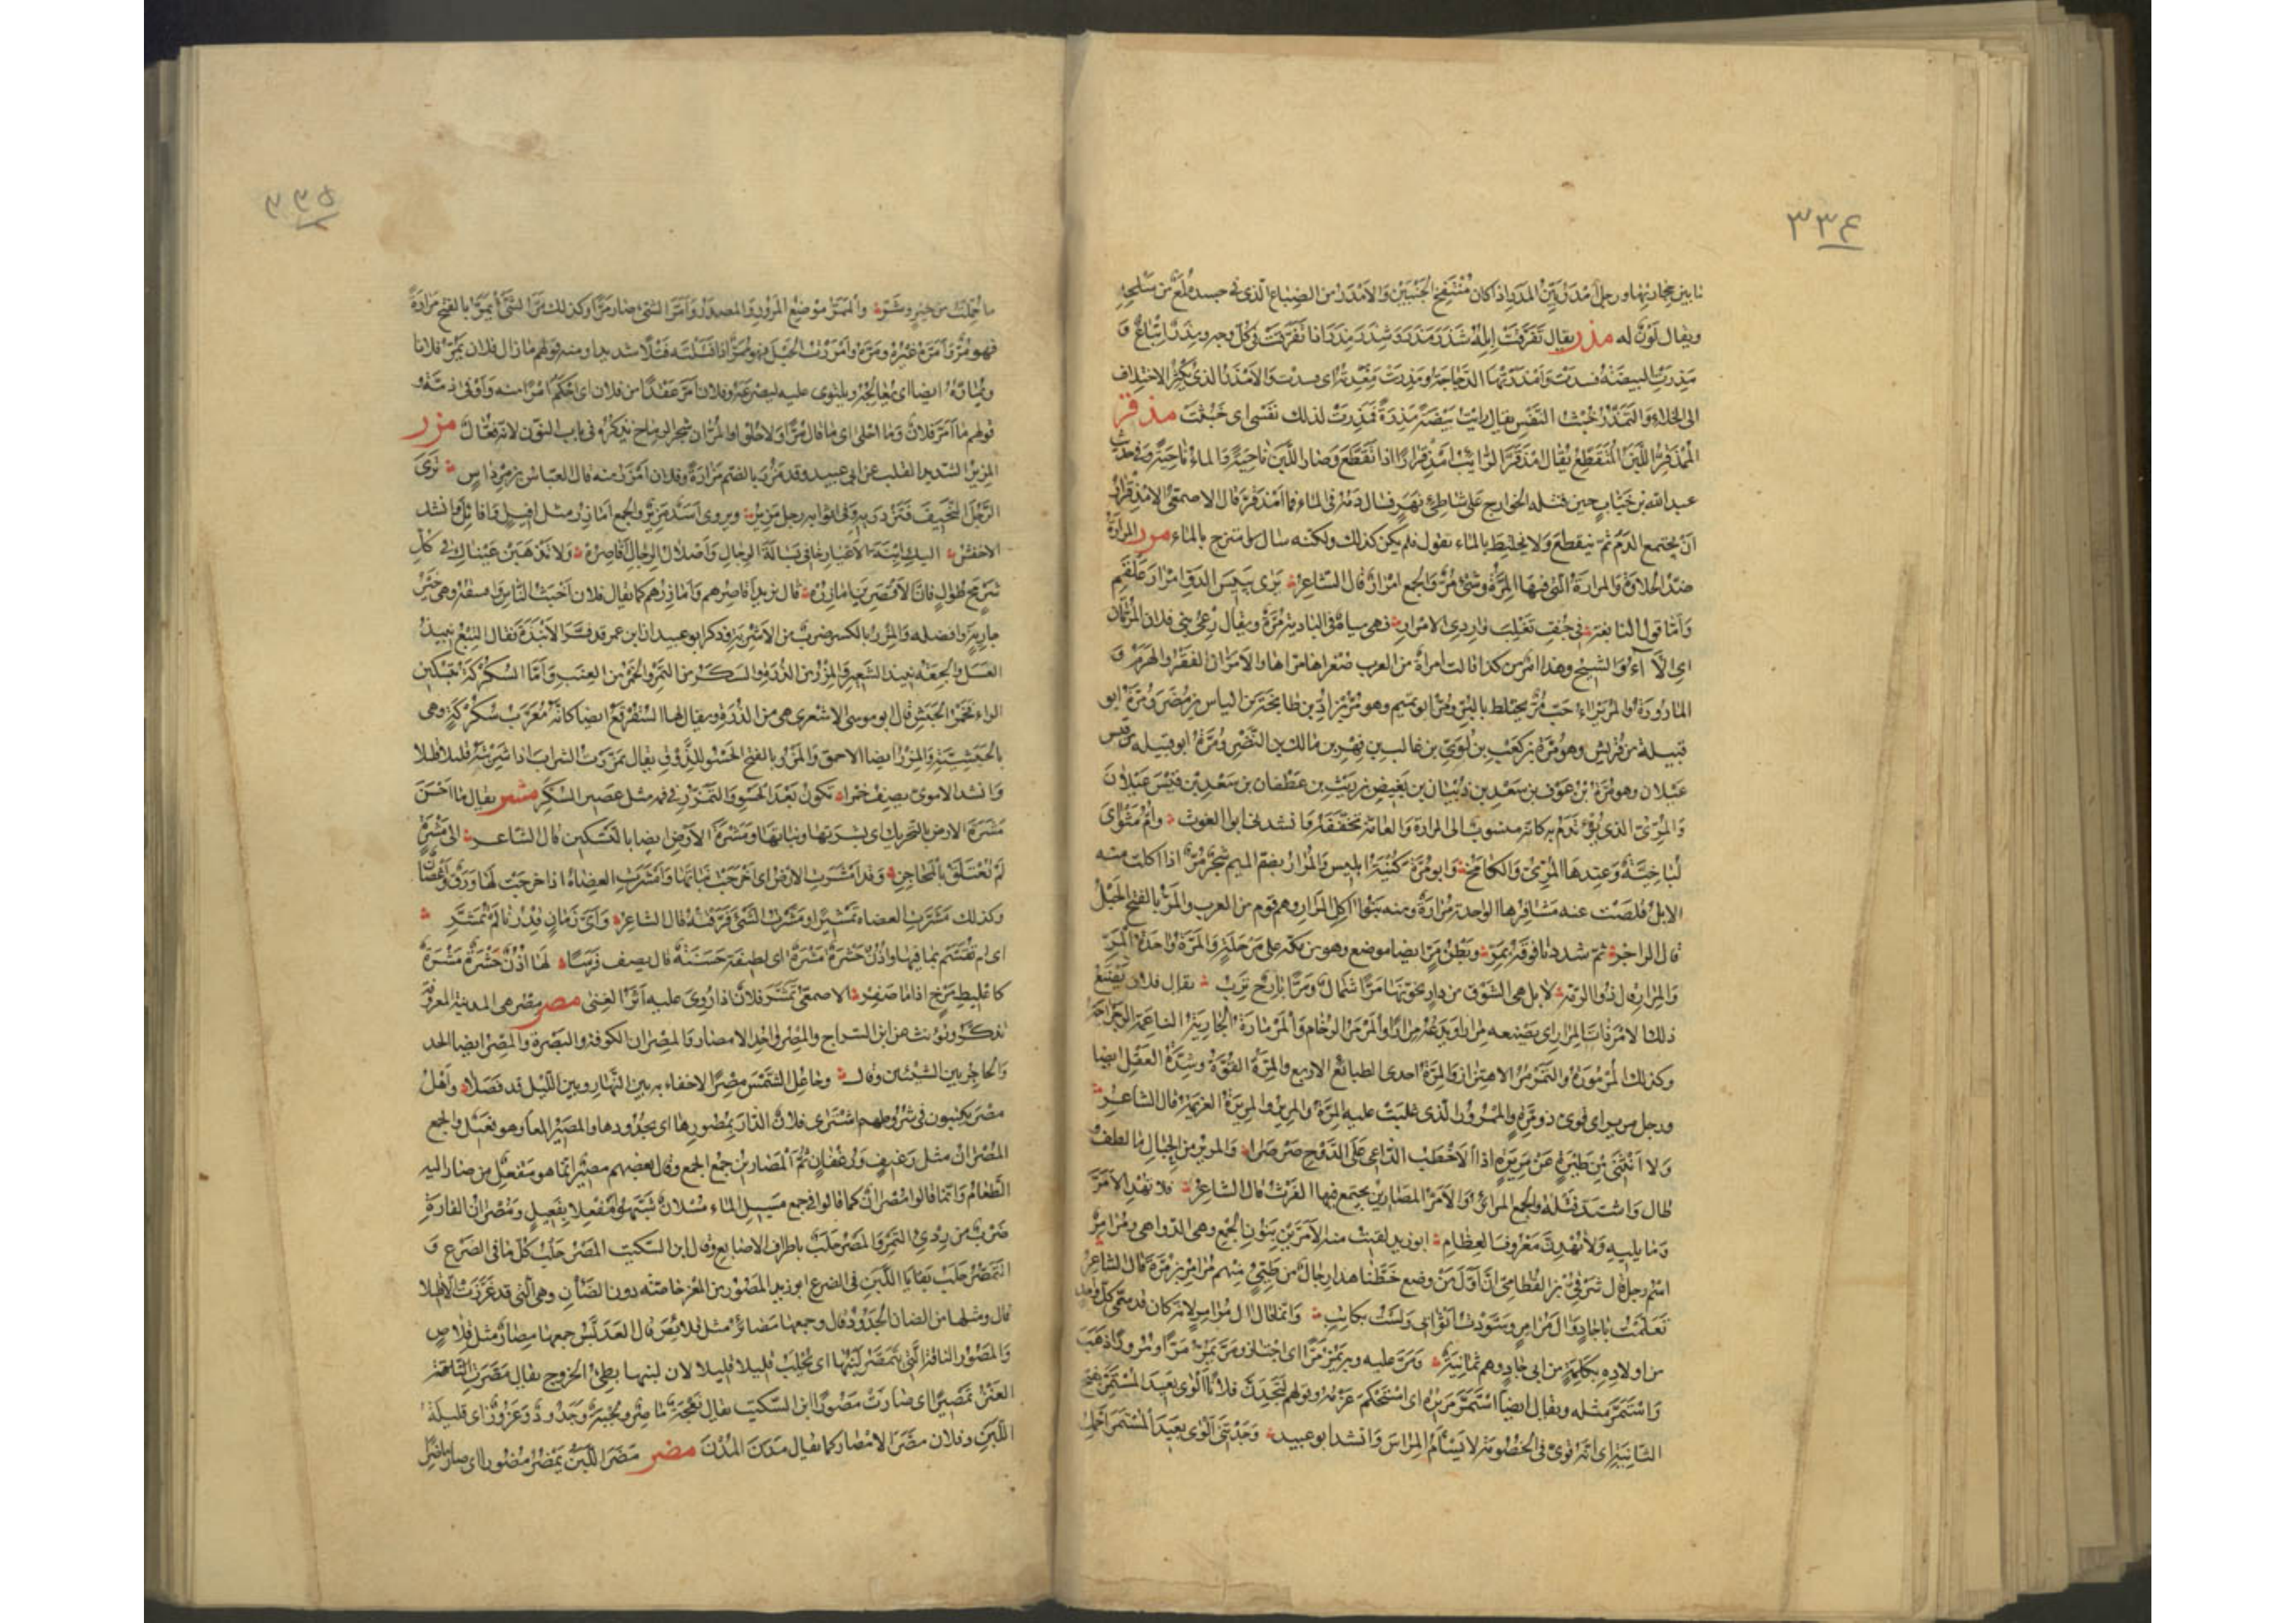 ٣٣۴
ما بين حجارتها ورجل أمدر بيّن المدر إذا كان منتفخ الجنبين والأمدر من الضباع الذي في جسده لمع من سلحه
ويقال لون له مذر يقال تفرّقت إبله شذر مذر وشذر مذر إذا تفرّقت في كل وجه ومذر إتباع و
مذرت البيضة فسدت وأمذرتها الدجاجة ومذرت معدته أي فسدت والأمذر الذي يكثر الاختلاف
إلى الخلاء والتمذّر خبث النفس يقال رأيت بيضة مذرة فمذرت لذلك نفسي أي خبثت مذقر
الممذقر اللبن المتقطع يقال امذقرّ الرائب امذقرارا إذا تقطع وصار اللبن ناحية والماء ناحية وفي حديث
عبد الله بن خباب حين قتله الخوارج على شاطئ نهر فسال دمه في الماء فما امذقرّ قال الأصمعي الامذقرار
أن يجتمع الدم ثم يتقطع ولا يختلط بالماء يقول فلم يكن كذلك ولكنه سال وامتزج بالماء مرر المرارة
ضد الحلاوة والمرارة التي فيها المرّة وشيء مرّ والجمع أمرار قال الشاعر يرى يبيس الدوّ أمرار علقم
وأما قول النابغة في جف تغلب واردي الأمرار فهي مياه في البادية مرّة ويقال رعي بني فلان المرّتان
أي الألاء والشيح وهذا أمرّ من كذا قالت امرأة من العرب صغراها مرّاها والأمرّان الفقر والهرم و
المارورة والمريراء حب مرّ يختلط بالبر ومرّ أبو تميم وهو مرّ بن أدّ بن طابخة بن الياس بن مضر ومرّة أبو
قبيلة من قريش وهو مرّة بن كعب بن لؤي بن غالب بن فهر بن مالك بن النضر ومرّة أبو قبيلة من قيس
عيلان وهو مرّة بن عوف بن سعد بن ذبيان بن بغيض بن ريث بن غطفان بن سعد بن قيس عيلان
والمرّيّ الذي يؤتدم به كأنه منسوب إلى المرارة والعامة تخففه وأنشدنا أبو الغوث وأم مثواي
لباخية وعندها المرّي والكامخ وأبو مرّة كنية إبليس والمرار بضم الميم شجر مرّ إذا أكلت منه
الإبل قلصت عنه مشافرها الواحدة مرارة ومنه بنو آكل المرار وهم قوم من العرب والمرّ بالفتح الحبل
قال الراجز ثم شددنا فوقه بمرّ وبطن مرّ أيضا موضع وهو من مكة على مرحلة والمرّة واحدة المرّ
والمرار قال ذو الرمة لا بل هو الشوق من دار تخوّنها مرّا شمال ومرّا بارح ترب يقال فلان يصنع
ذلك الأمر ذات المرار أي يصنعه مرارا ويدعه مرارا والمرمر الرخام والمرمارة الجارية الناعمة الرجراجة
وكذلك المرمورة والتمرمر الاهتزاز والمرّة إحدى الطبائع الأربع والمرّة القوة وشدة العقل أيضا
ورجل مرير أي قوي ذو مرّة والممرور الذي غلبت عليه المرّة والمرير والمريرة العزيمة قال الشاعر
ولا أنثني من طيرة عن مريرة إذا الأخطب الداعي على الدوح صرصرا والمرير من الحبال ما لطف
طال واشتد فتله والجمع المرائر والأمرّ المصارين يجتمع فيها الفرث قال الشاعر فلا تهد الأمرّ
وما يليه ولا تهدنّ معروق العظام أبو زيد لقيت منه الأمرّين بنون الجمع وهي الدواهي ومرامر
اسم رجل قال شرقي بن القطامي إن أول من وضع خطنا هذا رجال من طيئ منهم مرامر بن مرّة قال الشاعر
تعلّمت باجاد وآل مرامر وسوّدت أثوابي ولست بكاتب وإنما قال آل مرامر لأنه كان قد سمى كل واحد
من أولاده بكلمة من أبي جاد وهم ثمانية ومرّ عليه وبه يمرّ مرّا أي اجتاز ومرّ يمرّ مرّا ومرورا ذهب
واستمرّ مثله ويقال أيضا استمرّ مريره أي استحكم عزمه وقولهم لتجدنّ فلانا ألوى بعيد المستمرّ بفتح
الثانية أي أنه قوي في الخصومة لا يسأم المراس وأنشد أبو عبيد وجدتني ألوى بعيد المستمر أحمل
٣٣۵
ما حمّلت من خير وشر والممرّ موضع المرور والمصدر وأمرّ الشيء صار مرّا وكذلك مرّ الشيء يمرّ بالفتح مرارة
فهو مرّ وأمرّه غيره ومرّره وأمررت الحبل فهو ممرّ إذا فتلته فتلا شديدا ومنه قولهم ما زال فلان يمرّ فلانا
ويمارّه أيضا أي يعالجه ويلتوي عليه ليصرعه وفلان أمرّ عقدا من فلان أي أحكم أمرا منه وأوفى ذمّة و
قولهم ما أمرّ فلان وما أحلى أي ما قال مرّا ولا حلوا والمرّان شجر الرماح نذكره في باب النون لأنه فعّال مزر
المزير الشديد القلب عن أبي عبيد وقد مزر بالضم مزارة وفلان أمزر منه قال العباس بن مرداس ترى
الرجل النحيف فتزدريه وفي أثوابه رجل مزير ويروى أسد مزير والجمع أمازر مثل أفيل وأفائل وأنشد
الأخفش إليك ابنة الأغيار خافي بسالة الرجال وأصلال الرجال أقاصره ولا تذهبن عيناك في كل
شرمح طوال فإن الأقصرين أمازره قال يريد أقاصرهم وأمازرهم كما يقال فلان أخبث الناس وأفسقه وهي خير
جارية وأفضله والمزر بالكسر ضرب من الأشربة وذكر أبو عبيد أن ابن عمر قد فسّر الأنبذة فقال البتع نبيذ
العسل والجعة نبيذ الشعير والمزر من الذرة والسكر من التمر والخمر من العنب وأما السكركة بتسكين
الراء فخمر الحبش قال أبو موسى الأشعري هي من الذرة ويقال لها السقرقع أيضا كأنه معرّب سكركة وهي
بالحبشية والمزر أيضا الأحمق والمزر بالفتح الحسو للذوق يقال تمزّرت الشراب إذا شربته قليلا قليلا
وأنشد الأموي يصف خمرا تكون بعد الحسو والتمزّر في فمه مثل عصير السكر مشر يقال ما أحسن
مشرة الأرض بالتحريك أي بشرتها ونباتها ومشرة الأرض أيضا بالتسكين قال الشاعر إلى مشرة
لم تعتلق بالمحاجن وقد أمشرت الأرض أي أخرجت نباتها وأمشرت العضاه إذا خرجت لها ورق وأغصان
وكذلك مشّرت العضاه تمشيرا ومشّرت الشيء فرّقته قال الشاعر وأي زمان قدرنا لم تمشّر
أي لم تقسّم بما فيها وأذن حشرة مشرة أي لطيفة حسنة قال يصف فرسا لها أذن حشرة مشرة
كاعليط مرخ إذا ما صفر الأصمعي تمشّر فلان إذا رؤي عليه أثر الغنى مصر مصر هي المدينة المعروفة
تذكّر وتؤنث عن ابن السراج والمصر واحد الأمصار والمصران الكوفة والبصرة والمصر أيضا الحد
والحاجز بين الشيئين وقال وجاعل الشمس مصرا لا خفاء به بين النهار وبين الليل قد فصلا وأهل
مصر يكتبون في شروطهم اشترى فلان الدار بمصورها أي بحدودها والمصير المعا وهو فعيل والجمع
المصران مثل رغيف ورغفان ثم المصارين جمع الجمع وقال بعضهم مصير إنما هو مفعل من صار إليه
الطعام وإنما قالوا مصران كما قالوا في جمع مسيل الماء مسلان شبّهوا مفعلا بفعيل ومصران الفارة
ضرب من رديء التمر والمصر حلب بأطراف الأصابع وقال ابن السكيت المصر حلب كل ما في الضرع و
التمصّر حلب بقايا اللبن في الضرع أبو زيد المصور من المعز خاصة دون الضأن وهي التي قد غرزت إلا قليلا
قال ومثلها من الضأن الجدود قال وجمعها مصائر مثل قلائص قال العدبّس جمعها مصار مثل قلاص
والمصور الناقة التي يتمصّر لبنها أي يحلب قليلا قليلا لأن لبنها بطيء الخروج يقال مصّرت الناقة
العنز تمصيرا أي صارت مصورا ابن السكيت يقال نعجة ماصر ولجبة وجدود وغزوز أي قليلة
اللبن وفلان مصّر الأمصار كما يقال مدّن المدن مضر مضر اللبن يمضر مضورا أي صار ماضرا